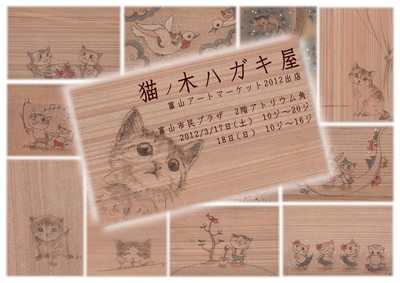 猫ノ木ハガキ屋
富山アートマーケット2012出店
富山市民プラザ 2階アトリウム角
2012/3/17日(土) 10ジ～20ジ
18日(日) 10ジ～16ジ